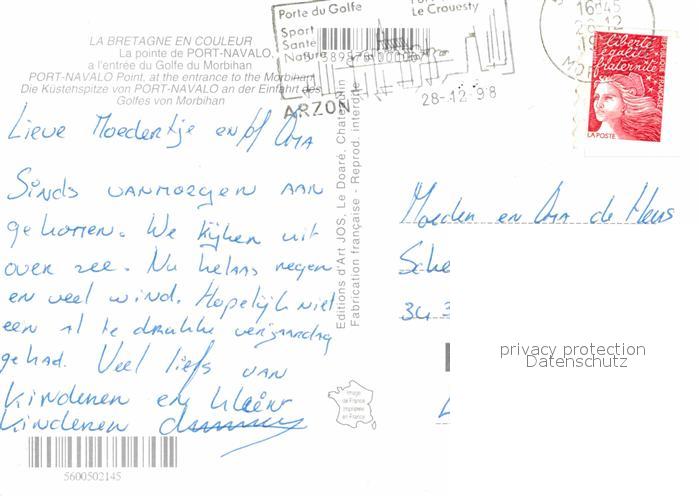 Porte du Golfe
Le Crouesty
Sport
Santé
Nature
ARZON
28-12-98
16h45
28-12
liberté
égalité
fraternité
LA POSTE
LA BRETAGNE EN COULEUR
La pointe de PORT-NAVALO,
à l'entrée du Golfe du Morbihan
PORT-NAVALO Point, at the entrance to the Morbihan
Die Küstenspitze von PORT-NAVALO an der Einfahrt des
Golfes von Morbihan
Lieve Moedertje en/of Oma
Sinds vanmorgen aan
gekomen. We kijken uit
over zee. Nu helaas regen
en veel wind. Hopelijk niet
een al te drukke verjaardag
gehad. Veel liefs van
kinderen en klein
kinderen
5600502145
Editions d'Art JOS, Le Doaré, Chateaulin
Fabrication française - Reprod. interdite
Image
de France
Imprimée
en France
Moeder en Oma de Heus
Sche
34
privacy protection
Datenschutz